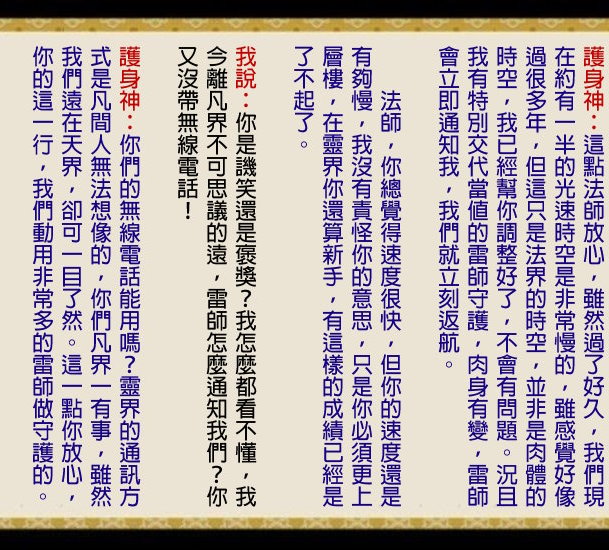 護身神：這點法師放心，雖然過了好久，我們現
在約有一半的光速時空是非常慢的，雖感覺好像
過很多年，但這只是法界的時空，並非是肉體的
時空，我已經幫你調整好了，不會有問題。況且
我有特別交代當值的雷師守護，肉身有變，雷師
會立即通知我，我們就立刻返航。
法師，你總覺得速度很快，但你的速度還是
有夠慢，我沒有責怪你的意思，只是你必須更上
層樓，在靈界你還算新手，有這樣的成績已經是
了不起了。
我說：你是譏笑還是褒獎？我怎麼都看不懂，我
今離凡界不可思議的遠，雷師怎麼通知我們？你
又沒帶無線電話！
護身神：你們的無線電話能用嗎？靈界的通訊方
式是凡間人無法想像的，你們凡界一有事，雖然
我們遠在天界，卻可一目了然。這一點你放心，
你的這一行，我們動用非常多的雷師做守護的。